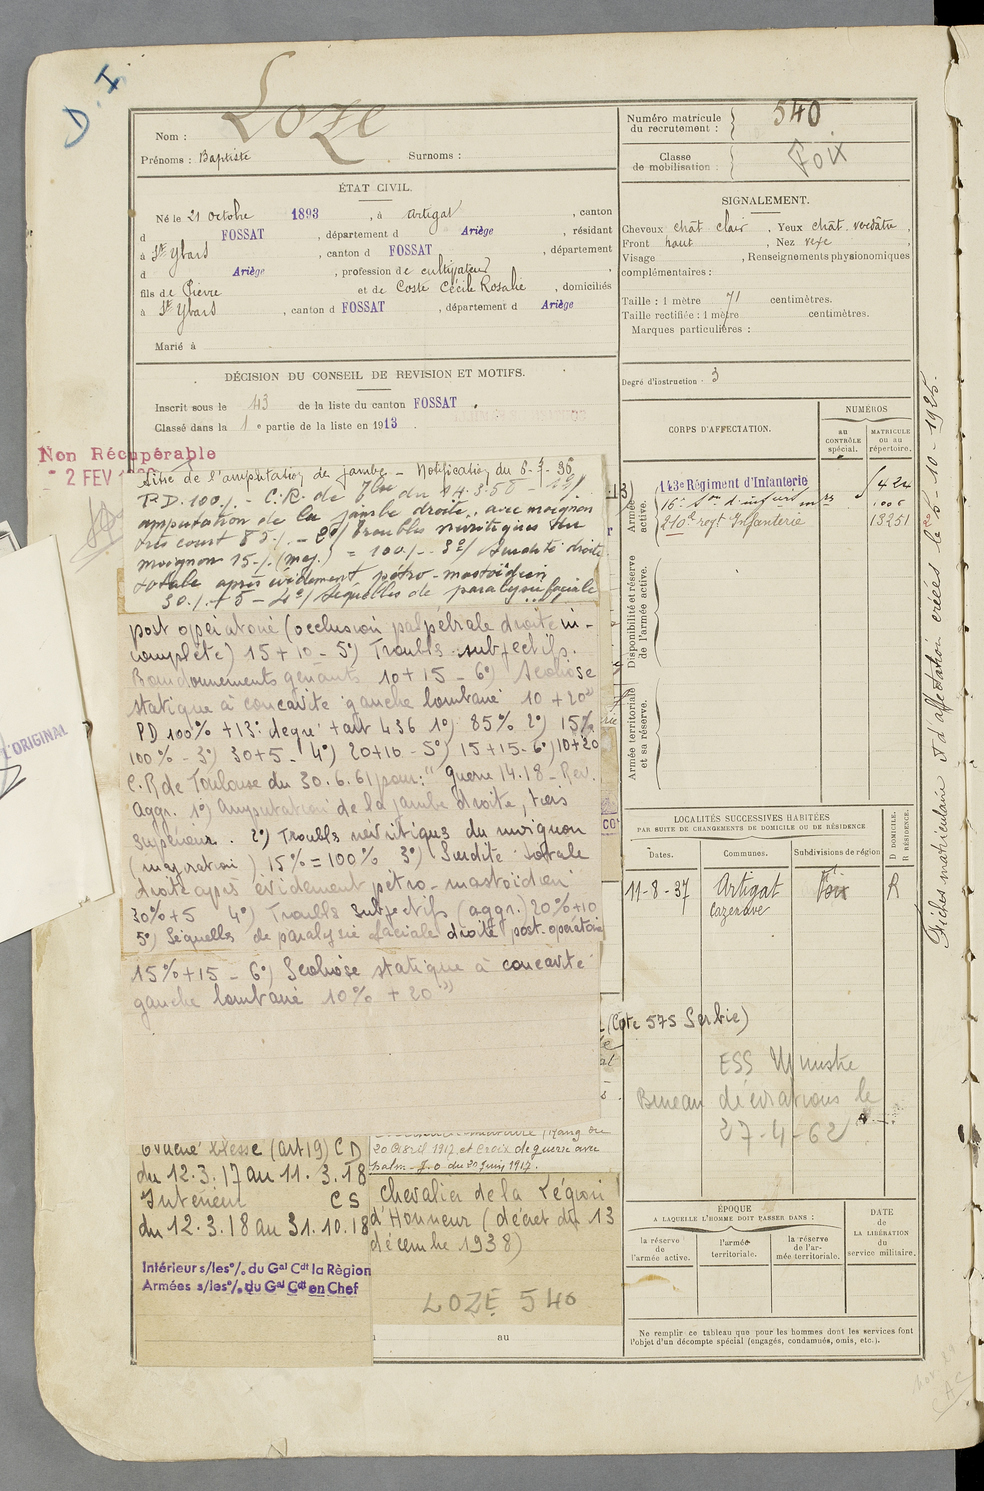 D. I
Loze
Nom :
Prénoms : Baptiste Surnoms :
ÉTAT CIVIL.
Né le 21 octobre 1893, à Artigat, canton
d FOSSAT, département d Ariège, résidant
à St Ybars, canton d FOSSAT, département
d Ariège, profession de cultivateur
fils de Pierre et de Coste Cécile Rosalie, domiciliés
à St Ybars, canton d FOSSAT, département d Ariège
Marié à
DÉCISION DU CONSEIL DE REVISION ET MOTIFS.
Inscrit sous le 43 de la liste du canton FOSSAT.
Classé dans la 1e partie de la liste en 1913.
Non Récupérable
2 FEV
titre de l'amputation de jambe - Notification du 6-3-36
P.D. 100% - C.R. de du 14.3.50 - 1°/
amputation de la jambe droite, avec moignon
très court 85% - 2°/ troubles névritiques du
moignon 15% (maj.) = 100% - 3°/ surdité droite
totale après évidement pétro-mastoïdien
30% + 5 - 4°/ séquelles de paralysie faciale
post opératoire (occlusion palpébrale droite in-
complète) 15 + 10 - 5°) Troubles subjectifs.
Bourdonnements gênants 10 + 15 - 6°) Scoliose
statique à concavité gauche lombaire 10 + 20"
PD 100% + 13e degré + art 436 1°) 85% 2°) 15%
100% - 3°) 30+5 - 4°) 20+10 - 5°) 15+15 - 6°) 10+20
C.R de Toulouse du 30.6.61 pour : "Guerre 14.18 - Rev.
Aggr. 1°) Amputation de la jambe droite, tiers
supérieur. 2°) Troubles névritiques du moignon
(majoration) 15% = 100% 3°) Surdité totale
droite après évidement pétro-mastoïdien
30% + 5 4°) Troubles subjectifs (aggr.) 20% + 10
5°) Séquelles de paralysie faciale droite post-opératoire
15% + 15 - 6°) Scoliose statique à concavité
gauche lombaire 10% + 20"
L'ORIGINAL
Evacué blessé (art 19) C D
du 12.3.17 au 11.3.18
Intérieur C S
du 12.3.18 au 31.10.18
Intérieur s/les °/. du Gal Cdt la Région
Armées s/les °/. du Gal Cdt en Chef
20 Avril 1917 et Croix de guerre avec
palm. J.O. du 20 juin 1917.
Chevalier de la Légion
d'Honneur (décret du 13
décembre 1938)
LOZE 540
au
Numéro matricule du recrutement : 540
Classe de mobilisation : Foix
SIGNALEMENT.
Cheveux chât clair, Yeux chât. verdâtre,
Front haut, Nez vexe,
Visage , Renseignements physionomiques
complémentaires :
Taille : 1 mètre 71 centimètres.
Taille rectifiée : 1 mètre centimètres.
Marques particulières :
Degré d'instruction : 3
CORPS D'AFFECTATION.
NUMÉROS
au CONTRÔLE spécial.
MATRICULE ou au répertoire.
Armée active.
143e Régiment d'Infanterie 424
1006
210e regt Infanterie 13251
Disponibilité et réserve de l'armée active.
Armée territoriale et sa réserve.
LOCALITÉS SUCCESSIVES HABITÉES
PAR SUITE DE CHANGEMENTS DE DOMICILE OU DE RÉSIDENCE
Dates. Communes. Subdivisions de région D DOMICILE. R RÉSIDENCE.
11-8-37 Artigat Foix R
Cazenave
(Cote 575 Serbie)
ESS Ministre
Bureau décorations le
27-4-62
ÉPOQUE
A LAQUELLE L'HOMME DOIT PASSER DANS :
la réserve de l'armée active.
l'armée territoriale.
la réserve de l'armée territoriale.
DATE de LA LIBÉRATION du service militaire.
Ne remplir ce tableau que pour les hommes dont les services font
l'objet d'un décompte spécial (engagés, condamnés, omis, etc.).
Fiches matriculaire et d'affectation créées le 5-10-1925.